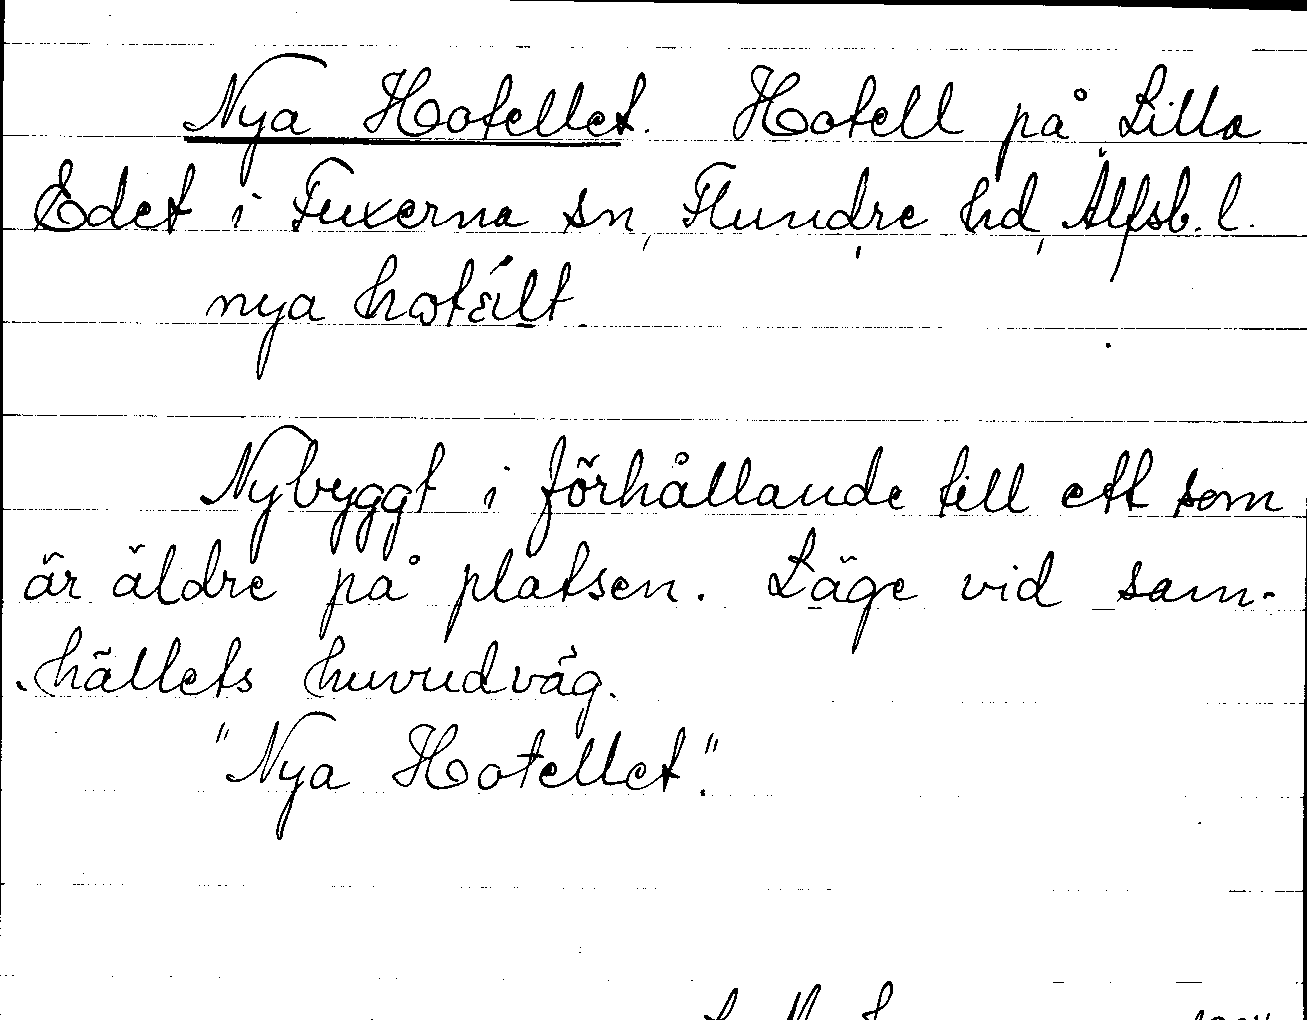 Nya Hotellet. Hotell på Lilla
Edet i Fuxerna sn, Flundre hd, Älfsb. l.
nya
Nybyggt i förhållande till ett som
är äldre på platsen. Läge vid sam-
hällets huvudväg.
"Nya Hotellet".